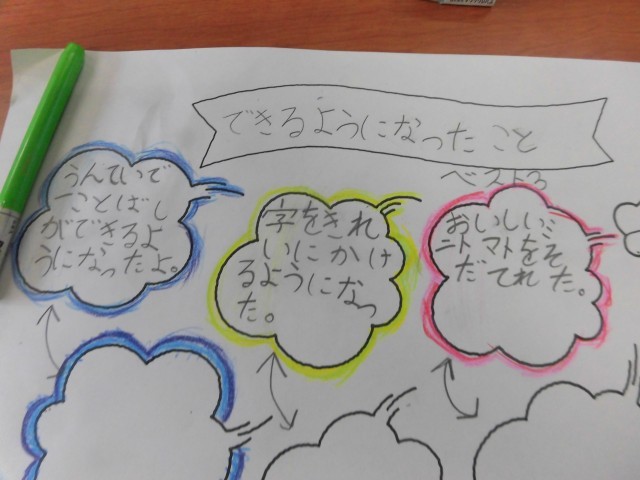 できるようになったこと
ベスト3
うんていで
一ことばし
ができるよ
うになったよ。
字をきれ
いにかけ
るようになっ
た。
おいしいミ
ニトマトをそ
だてれた。